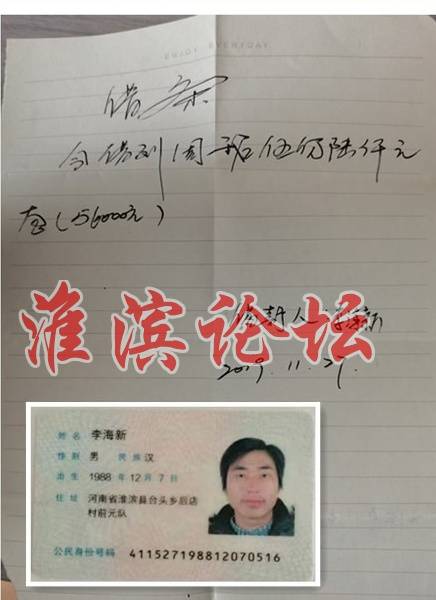 ENJOY EVERYDAY
借条
今借到周 伍万陆仟元
整(56000元)
淮滨论坛
借款人 李海新
2019.11.27.
姓名 李海新
性别 男 民族 汉
出生 1988 年 12 月 7 日
住址 河南省淮滨县台头乡后店
村前元队
公民身份号码 411527198812070516